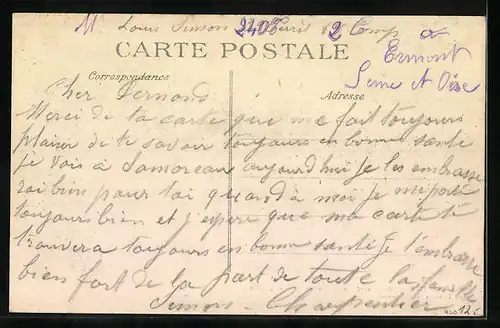 Mr Louis Simon 2405 2 Comp
CARTE POSTALE
Ermont
Seine et Oise
Correspondance
Adresse
Cher Fernand
Merci de ta carte que me fait toujours
plaisir de te savoir toujours en bonne santé
je vais à Samoreau aujourd'hui je les embrasserai
bien pour toi quand à moi je me porte
toujours bien et j'espère que ma carte te
trouvera toujours en bonne santé je t'embrasse
bien fort de la part de toute la famille
Simon Charpentier